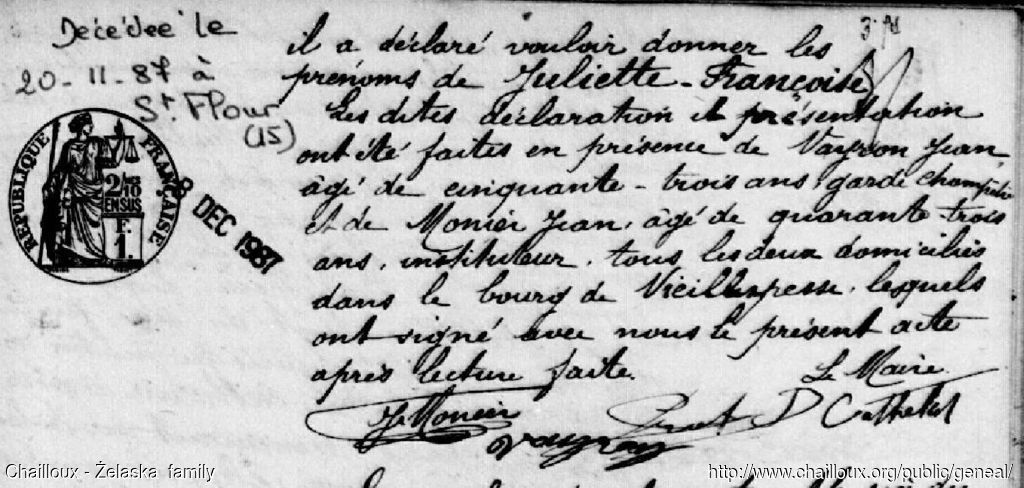 Décédée le
20-11-87 à
St Flour
(15)
RÉPUBLIQUE FRANÇAISE
2/10
EN SUS
F.
1.
8 DEC 1987
il a déclaré vouloir donner les
prénoms de Juliette-Françoise
Les dites déclaration et présentation
ont été faites en présence de Vayron Jean
âgé de cinquante-trois ans, garde champêtre
et de Monier Jean, âgé de quarante-trois
ans, instituteur, tous les deux domiciliés
dans le bourg de Vieillespesse, lesquels
ont signé avec nous le présent acte
après lecture faite.
Le Maire
J Monier
Vayron
Chailloux - Želaska family
http://www.chailloux.org/public/geneal/